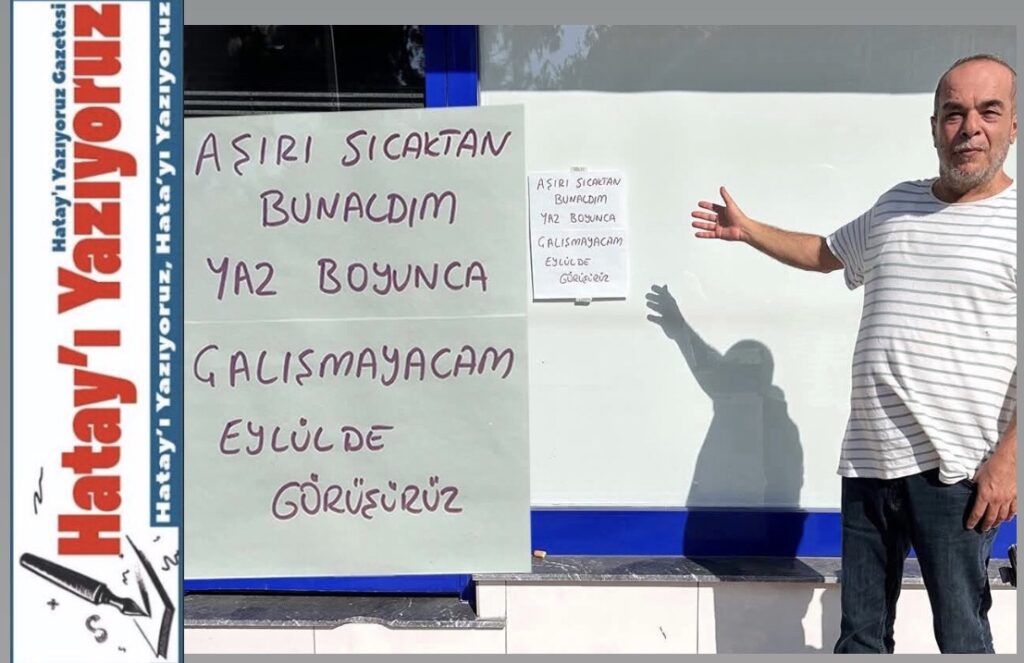 Hatay'ı Yazıyoruz Gazetesi
Hatay'ı Yazıyoruz
Hatay'ı Yazıyoruz, Hata'yı Yazıyoruz
AŞIRI SICAKTAN
BUNALDIM
YAZ BOYUNCA
GALIŞMAYACAM
EYLÜLDE
GÖRÜŞÜRÜZ
AŞIRI SICAKTAN
BUNALDIM
YAZ BOYUNCA
GALIŞMAYACAM
EYLÜLDE
GÖRÜŞÜRÜZ